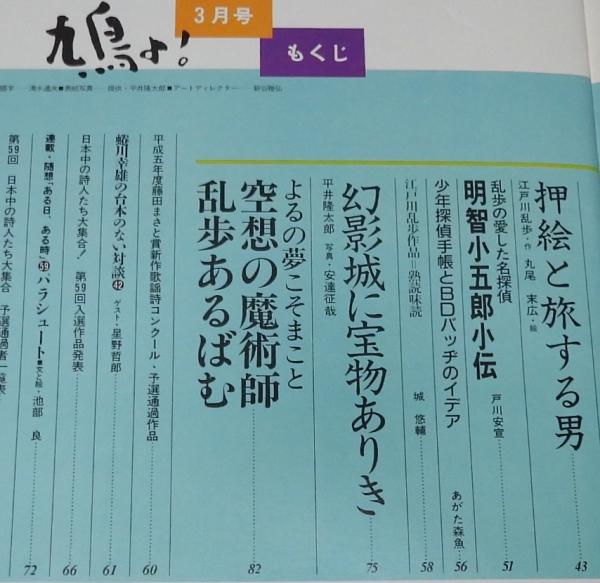 鳩よ!
3月号
もくじ
清水達夫■表紙写真──提供・平井隆太郎■アートディレクター──新谷雅弘
押絵と旅する男
江戸川乱歩・作 丸尾 末広・絵
43
乱歩の愛した名探偵
明智小五郎小伝
戸川安宣
51
少年探偵手帳とBDバッヂのイデア
あがた森魚
56
江戸川乱歩作品=熟読味読
城 悠輔
58
幻影城に宝物ありき
平井隆太郎 写真・安達征哉
75
よるの夢こそまこと
空想の魔術師
乱歩あるばむ
82
平成五年度藤田まさと賞新作歌謡詩コンクール・予選通過作品
60
蜷川幸雄の台本のない対談㊷ ゲスト・星野哲郎
61
日本中の詩人たち大集合! 第59回入選作品発表
66
連載・随想「ある日、ある時」59 パラシュート■文と絵・池部 良
72
第59回 日本中の詩人たち大集合 予選通過者一覧表